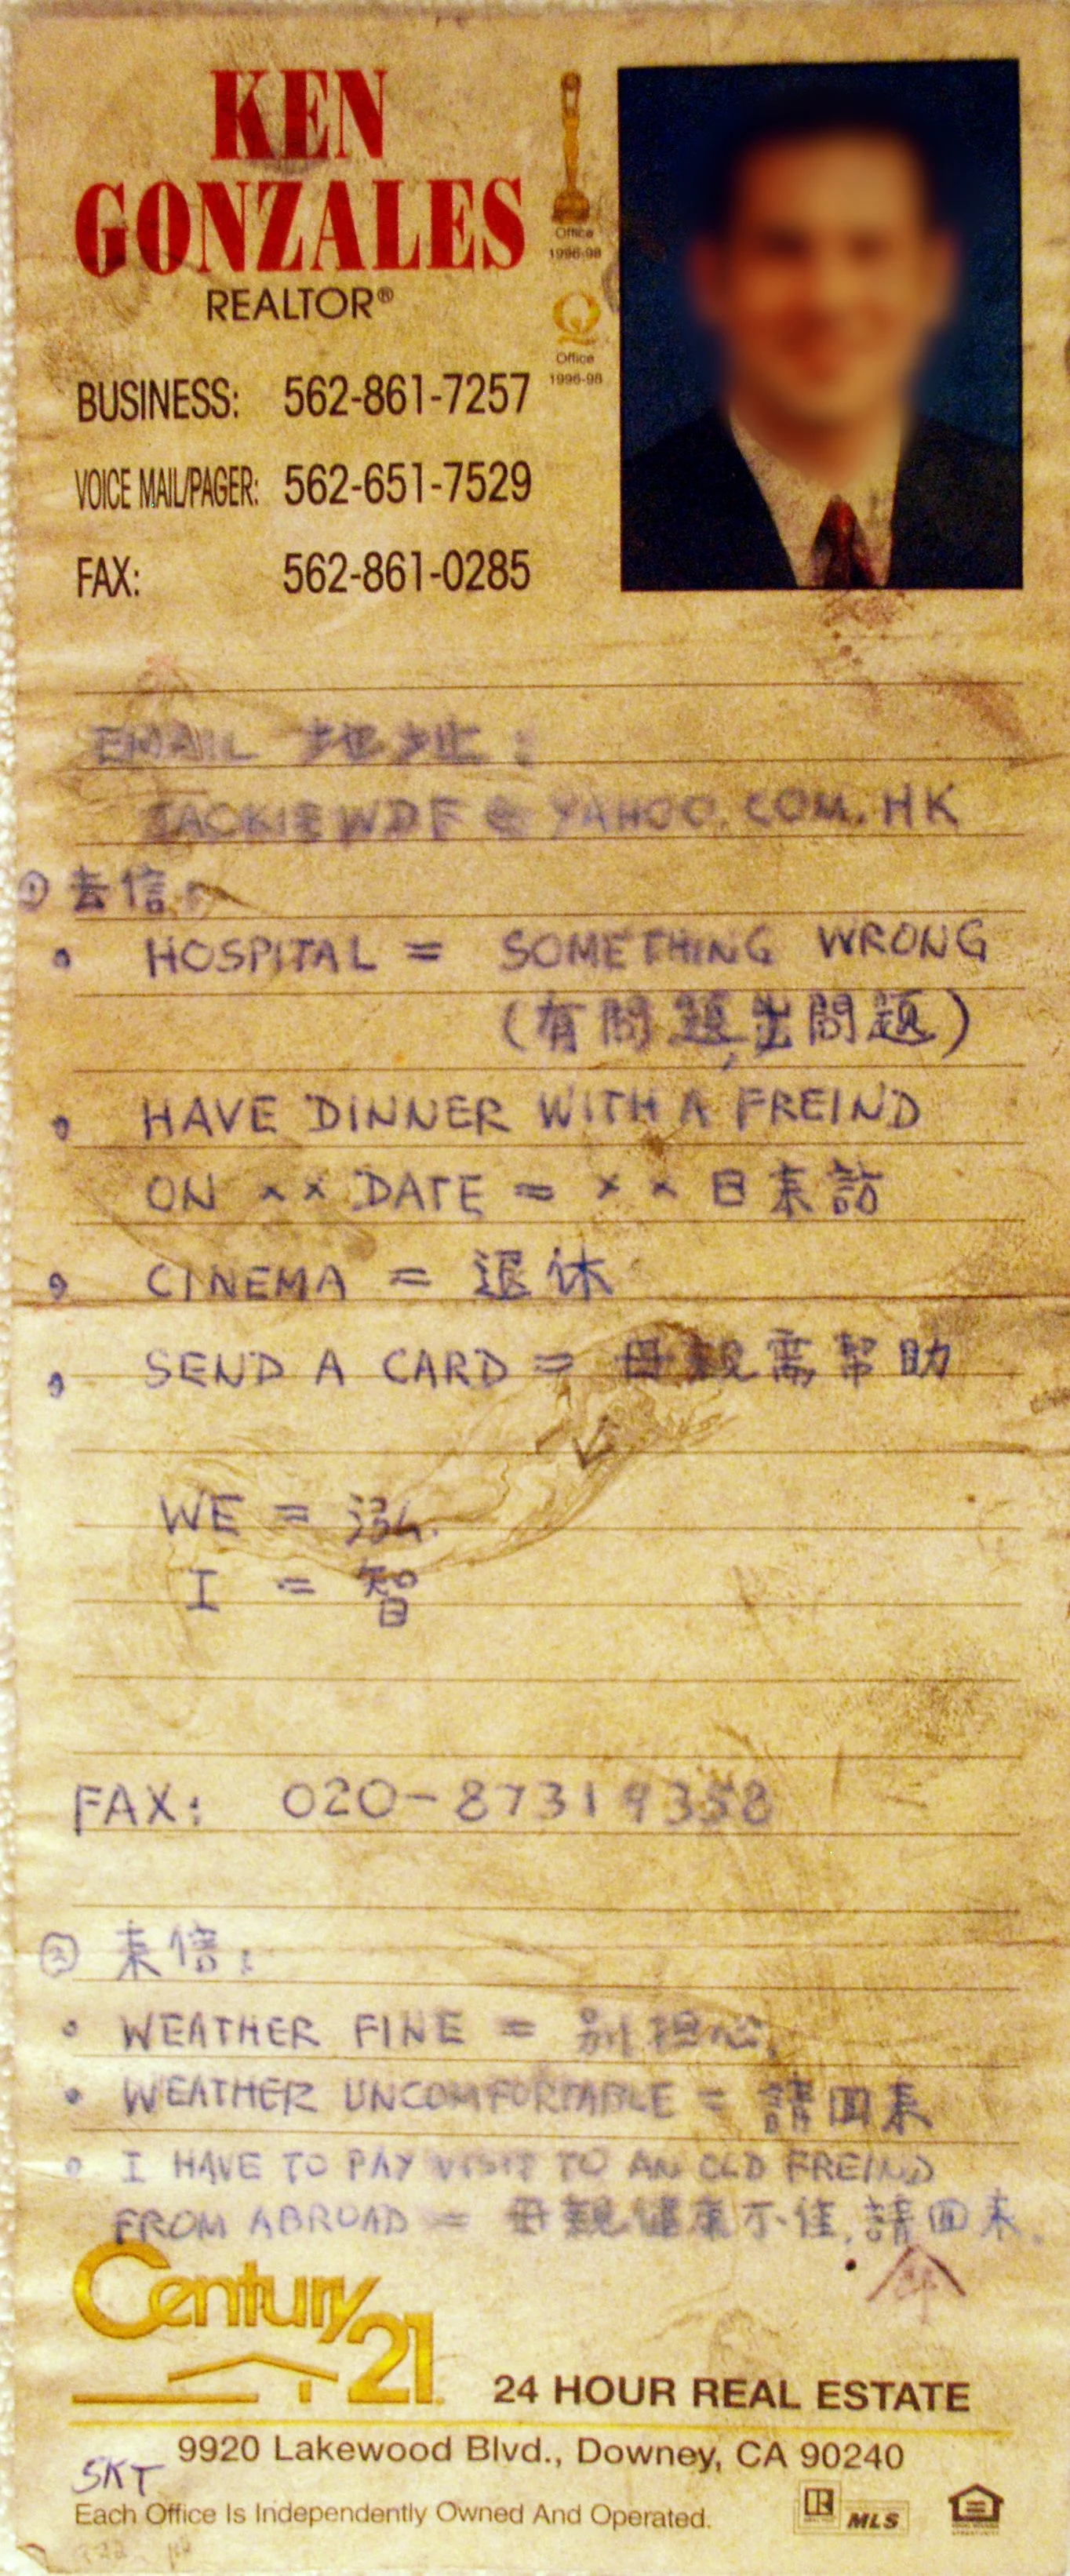 KEN
GONZALES
REALTOR®
Office
1996-98
Office
1996-98
BUSINESS: 562-861-7257
VOICE MAIL/PAGER: 562-651-7529
FAX: 562-861-0285
EMAIL 地址:
JACKIEWDF@YAHOO.COM.HK
① 去信:
• HOSPITAL = SOMETHING WRONG
(有問題,出問題)
• HAVE DINNER WITH A FREIND
ON ×× DATE = ×× 日来訪
• CINEMA = 退休
• SEND A CARD = 母親需幫助
WE = 泓
I = 智
FAX: 020-87319358
② 来信:
• WEATHER FINE = 別担心.
• WEATHER UNCOMFORTABLE = 請回来
• I HAVE TO PAY VISIT TO AN OLD FREIND
FROM ABROAD = 母親健康不佳,請回来.
Century 21
24 HOUR REAL ESTATE
9920 Lakewood Blvd., Downey, CA 90240
SKT
Each Office Is Independently Owned And Operated.
R MLS